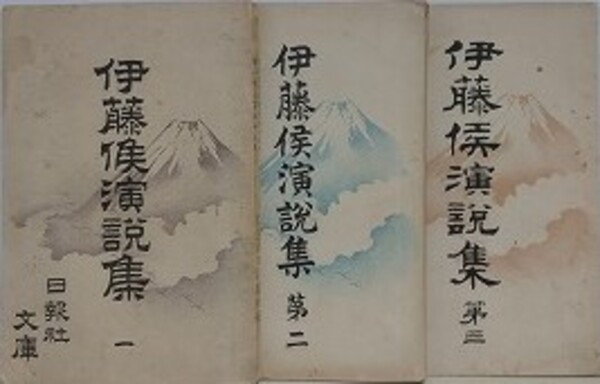 伊藤侯演説集
一
日報社
文庫
伊藤侯演説集
第二
伊藤侯演説集
第三